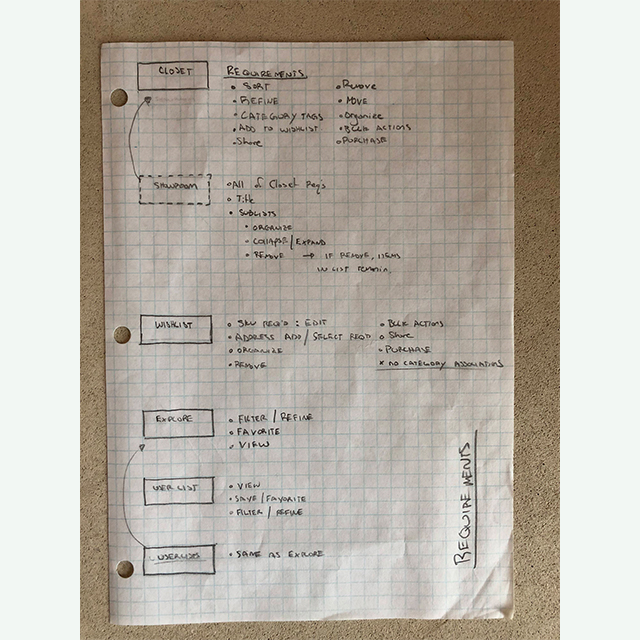 CLOSET
REQUIREMENTS
• SORT
• REFINE
• CATEGORY TAGS
• ADD TO WISHLIST
• Share
• Remove
• MOVE
• Organize
• BULK ACTIONS
• PURCHASE
SHOWROOM
• All of Closet Req's
• Title
• SUBLISTS
• ORGANIZE
• COLLAPSE/EXPAND
• REMOVE → IF REMOVE, ITEMS
IN LIST REMAIN.
WISHLIST
• SKU REQ'D : EDIT
• ADDRESS ADD/SELECT REQ'D
• ORGANIZE
• REMOVE
• BULK ACTIONS
• Share
• PURCHASE
* NO CATEGORY ASSOCIATIONS
EXPLORE
• FILTER / REFINE
• FAVORITE
• VIEW
USER LIST
• VIEW
• SAVE/FAVORITE
• FILTER / REFINE
USERLISTS
• SAME AS EXPLORE
REQUIREMENTS